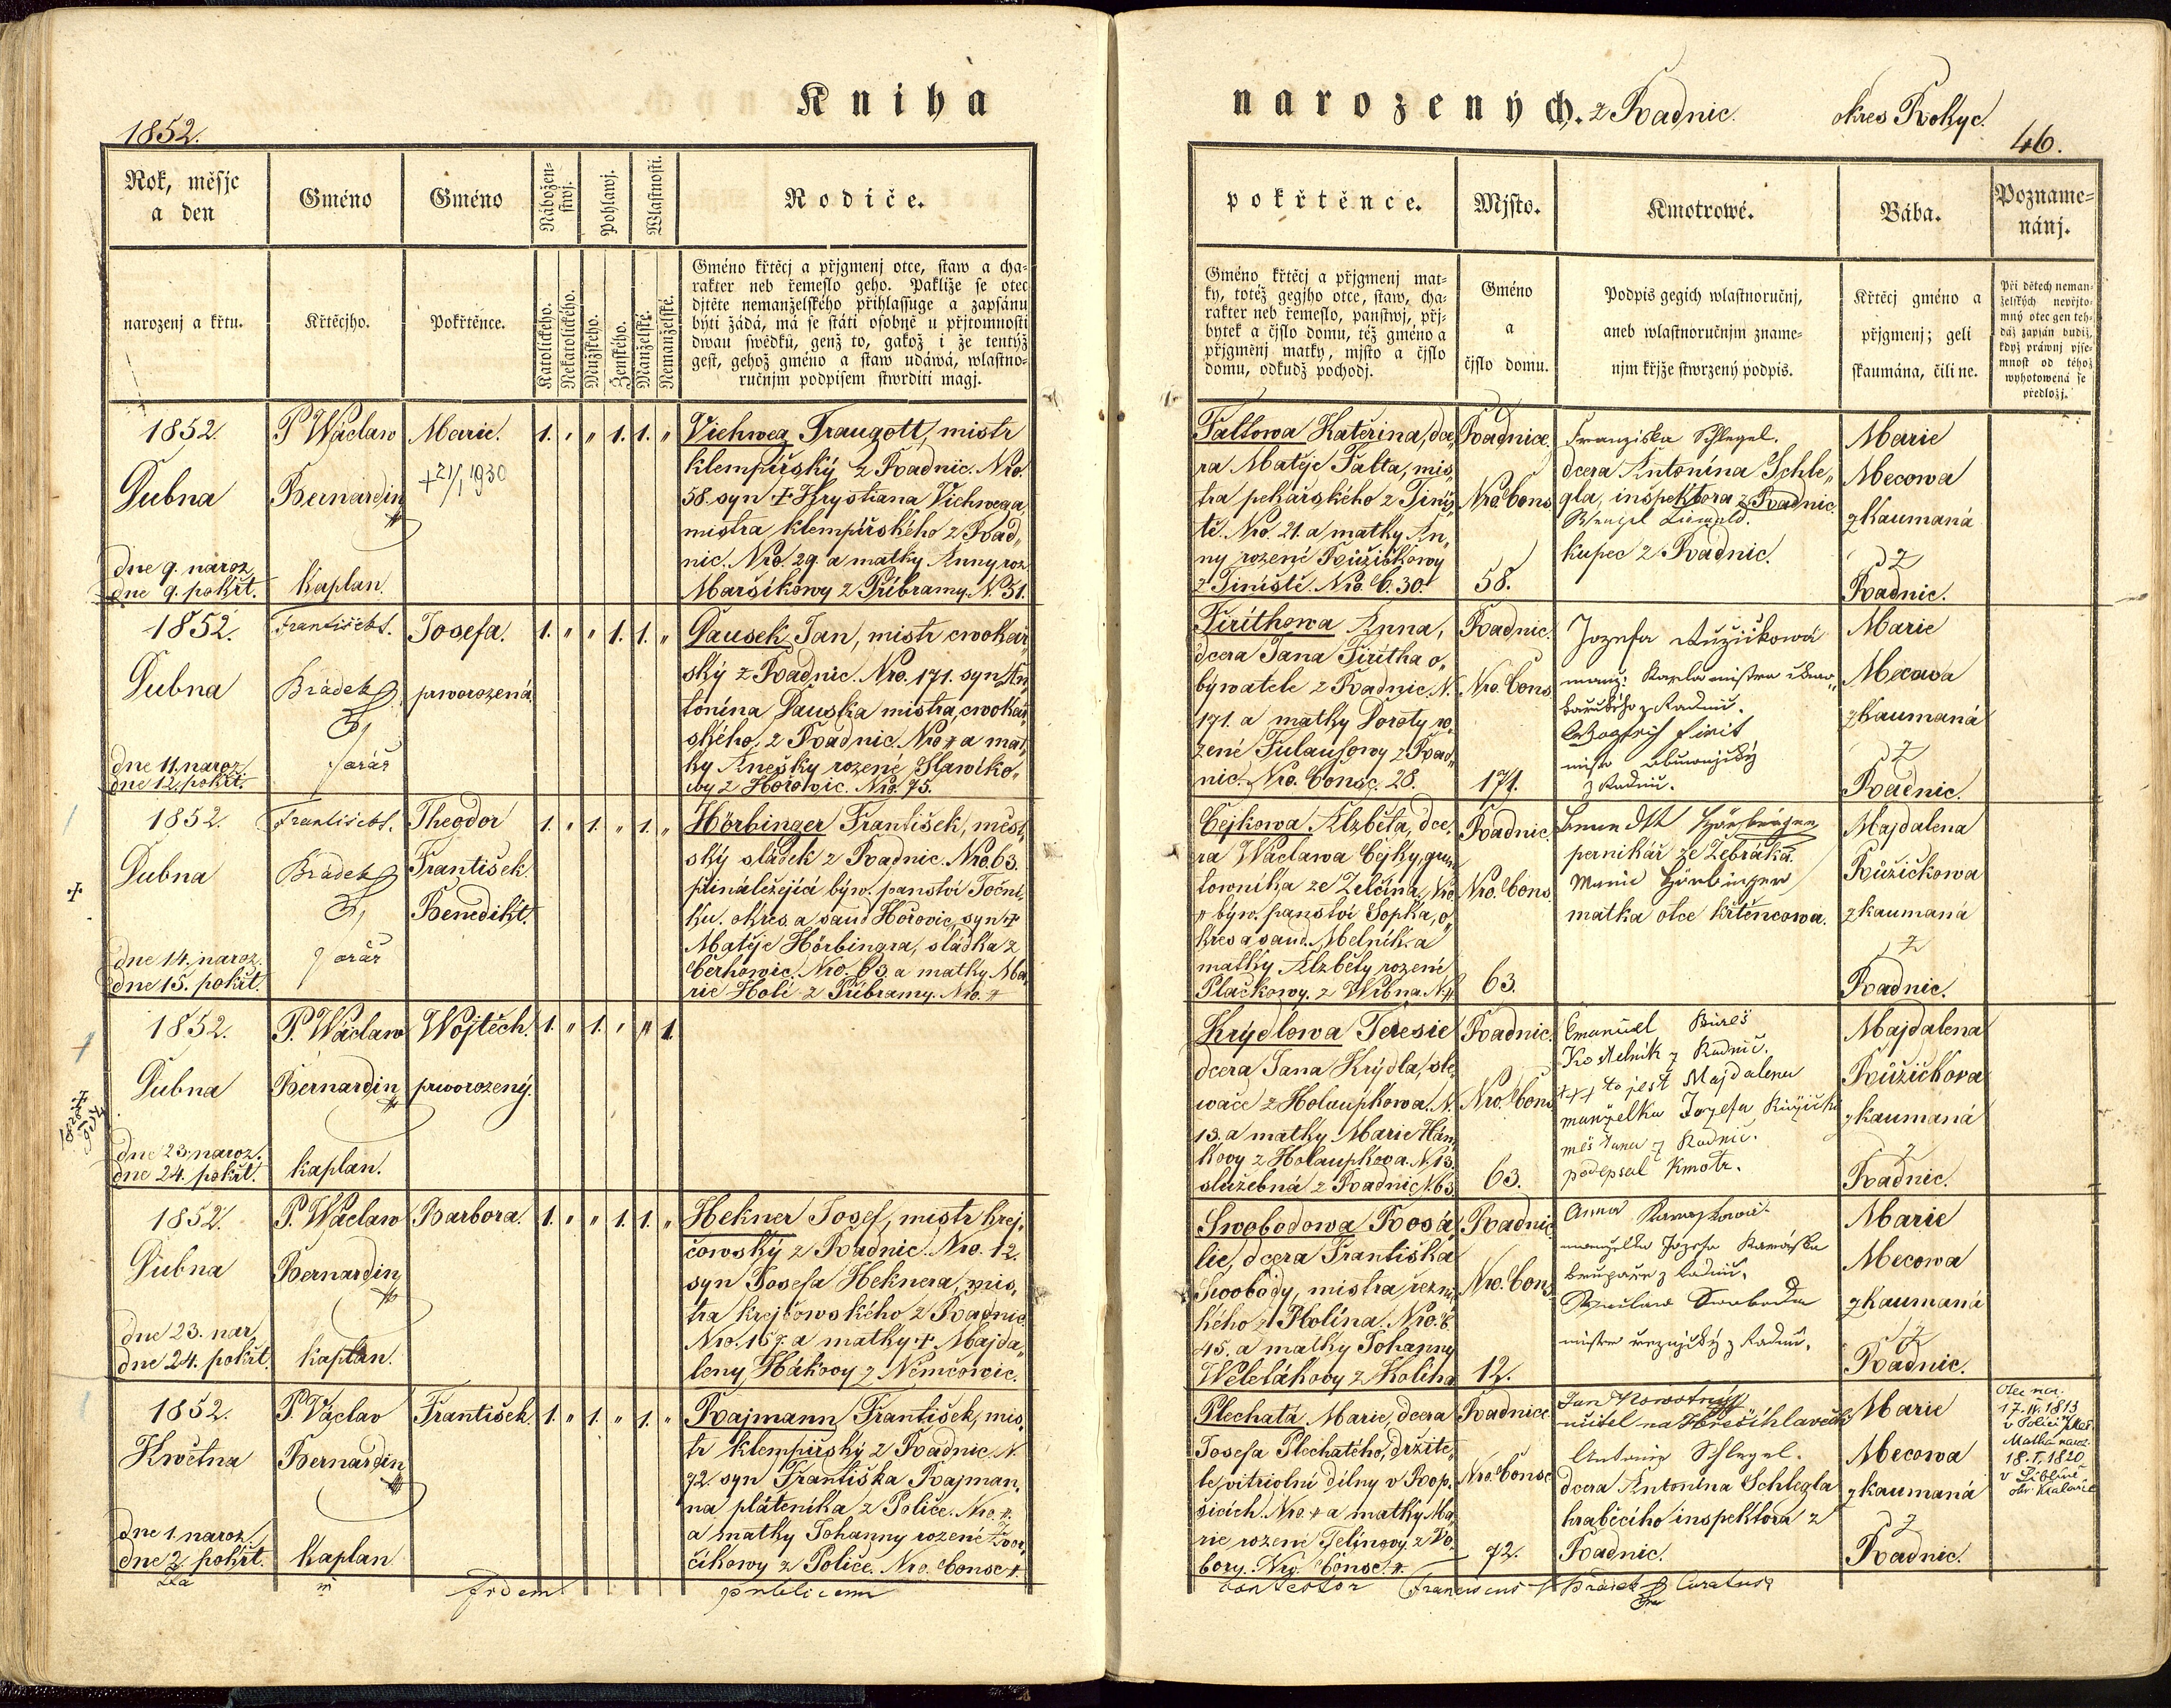 Kniha
narozených. z Radnic.
okres Rokyc.
1852.
46.
Rok, měsjc
a den
Gméno
Gméno
Nábožen-
stwj.
Pohlawj.
Wlastnosti.
Rodiče.
narozenj a křtu.
Křtěcjho.
Pokřtěnce.
Katolického.
Nekatolického.
Mužského.
Ženského.
Manželské.
Nemanželské.
Gméno křtěcj a přjgmenj otce, staw a cha-
rakter neb řemeslo geho. Pakliže se otec
djtěte nemanželského přihlassuge a zapsánu
býti žádá, má se státi osobně u přjtomnosti
dwau swědků, genž to, gakož i že tentýž
gest, gehož gméno a staw udáwá, wlastno-
ručnjm podpisem stwrditi magj.
1852.
Dubna
dne 9. naroz.
dne 9. pokřt.
P Wáclaw
Bernardin
kaplan.
Marie.
+ 21/1 1930
1. " " 1. 1. "
Viehweg Traugott, mistr
klempířský z Radnic. Nro.
58. syn + Krystiana Viehwega,
mistra klempířského z Rad„
nic. Nro. 29. a matky Anny roz.
Maršíkowy z Příbramy. N. 31.
1852.
Dubna
dne 11. naroz.
dne 12. pokřt.
František
Brádek
farář
Josefa.
prworozená
1. " " 1. 1. "
Pausek Jan, mistr cwokař„
ský z Radnic. Nro. 171. syn An„
tonína Pauska mistra cwokař„
ského, z Radnic. Nro # a mat„
ky Anešky rozené Slawíko„
wy z Hořowic. Nro. 75.
1852.
Dubna
dne 14. naroz.
dne 15. pokřt.
František
Brádek
farář
Theodor
František
Benedikt.
1. " 1. " 1. "
Hörbinger František, měst„
ský sládek z Radnic. Nro. 63.
přináležející býw. panství Toční„
ku. okres a saud Hořovic, syn +
Matěje Hörbingra, sládka z
Cerhowic. Nro. 63. a matky Ma„
rie Holé z Příbramy. Nro. #
1852.
Dubna
dne 23. naroz.
dne 24. pokřt.
P. Wáclaw
Bernardin
kaplan.
Wojtěch.
prworozený.
1. " 1. " " 1.
1852.
Dubna
dne 23. nar.
dne 24. pokřt.
P. Wáclaw
Bernardin
kaplan.
Barbora.
1. " " 1. 1. "
Hekner Josef, mistr krej„
čowský z Radnic. Nro. 12.
syn Josefa Heknera, mis„
tra krejčowského z Radnic.
Nro. 157. a matky + Majda„
leny Hákovy z Němčowic.
1852.
Května
dne 1. naroz.
dne 2. pokřt.
P. Václav
Bernardin
kaplan
František.
1. " 1. " 1. "
Rajmann František, mis„
tr klempířský z Radnic. N.
72. syn Františka Rajman„
na plátenika z Police. Nro. #.
a matky Johanny rozené Dvor„
čikowy z Police. Nro. Consc #.
pokřtěnce.
Mjsto.
Kmotrowé.
Bába.
Pozname-
nánj.
Gméno křtěcj a přjgmenj mat-
ky, totéž gegjho otce, staw, cha-
rakter neb řemeslo, panstwj, přj-
bytek a čjslo domu, též gméno a
přjgmenj matky, mjsto a čjslo
domu, odkudž pochodj.
Gméno
a
čjslo domu.
Podpis gegich wlastnoručnj,
aneb wlastnoručnjm zname-
njm křjže stwrzený podpis.
Křtěcj gméno a
přjgmenj; geli
skaumána, čili ne.
Při dětech neman-
želských nepřjto-
mný otec gen teh-
dáž zapsán budiž,
když práwnj pjse-
mnost od téhož
wyhotowená se
předložj.
Taltowa Kateřina, dce„
ra Matěje Talta, mis„
tra pekařského z Tiniš„
tě. Nro. 21. a matky An„
ny rozené Růžičkowy
z Tiniště. Nro. C. 30.
Radnice
Nro. Cons
58.
Franziska Schlegel.
dcera Antonína Schle„
gla, inšpektora z Radnic.
Wenzel
kupec z Radnic.
Marie
Mecowa
zkaumaná
z
Radnic.
Tirithowa Anna,
dcera Jana Tiritha o„
býwatele z Radnic. N.
171. a matky Doroty ro„
zené Tulausowy z Rad„
nic. Nro. Consc. 28.
Radnic.
Nro. Cons
171.
Jozefa Ružičkowá
z Radnic.
Marie
Mecowa
zkaumaná
z
Radnic.
Cejkowa Alzběta, dce„
ra Wáclawa Cejky, grun„
towníka ze Zelčína, Nro
# býw. panství Łopka, o„
kres a saud. Melník a
matky Alzběty rozené
Plačkowy z Wrbna. N. #
Radnic.
Nro. Cons.
63.
Hörbinger
pernikář ze Zebráka.
Marie Hörbinger
matka otce křtěncowa.
Majdalena
Růžičkowa
zkaumaná
z
Radnic.
Krýdlowa Teresie
dcera Jana Krýdla, sle„
wače z Holaupkowa. N.
13. a matky Marie Hán„
kovy z Holaupkova. N. 13.
služebná z Radnic N. 63.
Radnic.
Nro. Cons
63.
Emanuel Bureš
Kostelník z Radnic.
+++ to jest Majdalena
manželka Jozefa Růžički
měšťana z Radnic.
podepsal kmotr.
Majdalena
Růžičkova
zkaumaná
z
Radnic.
Swobodowa Rosá„
lie, dcera Františka
Swobody, mistra řezni„
kého z Wolína. Nro. C.
45. a matky Johanny
Weletákovy z Kolína
Radnic
Nro. Cons
12.
Anna
manželka Jozefa
z Radnic.
Wáclaw Swoboda
mistr řeznický z Radnic.
Marie
Mecowa
zkaumaná
z
Radnic.
Plechatá Marie, dcera
Josefa Plechatého, držite„
le vitriolní dílny v Rop„
šicích. Nro. # a matky Ma„
rie rozené Jelinovy z Do„
bory. Nro. Consc. #.
Radnice
Nro. Consc
72.
Jan Nowotný
učitel na
Antonie Schlegel.
dcera Antonína Schlegla
hraběcího inspektora z
Radnic.
Marie
Mecowa
zkaumaná
z
Radnic.
Otec nar.
17. IV. 1813
v Polici
Matka naroz.
18. I. 1820
v Liblíně
okr. Kralovic
fidem
publicam
contestor
Franciscus Brádek Curatus